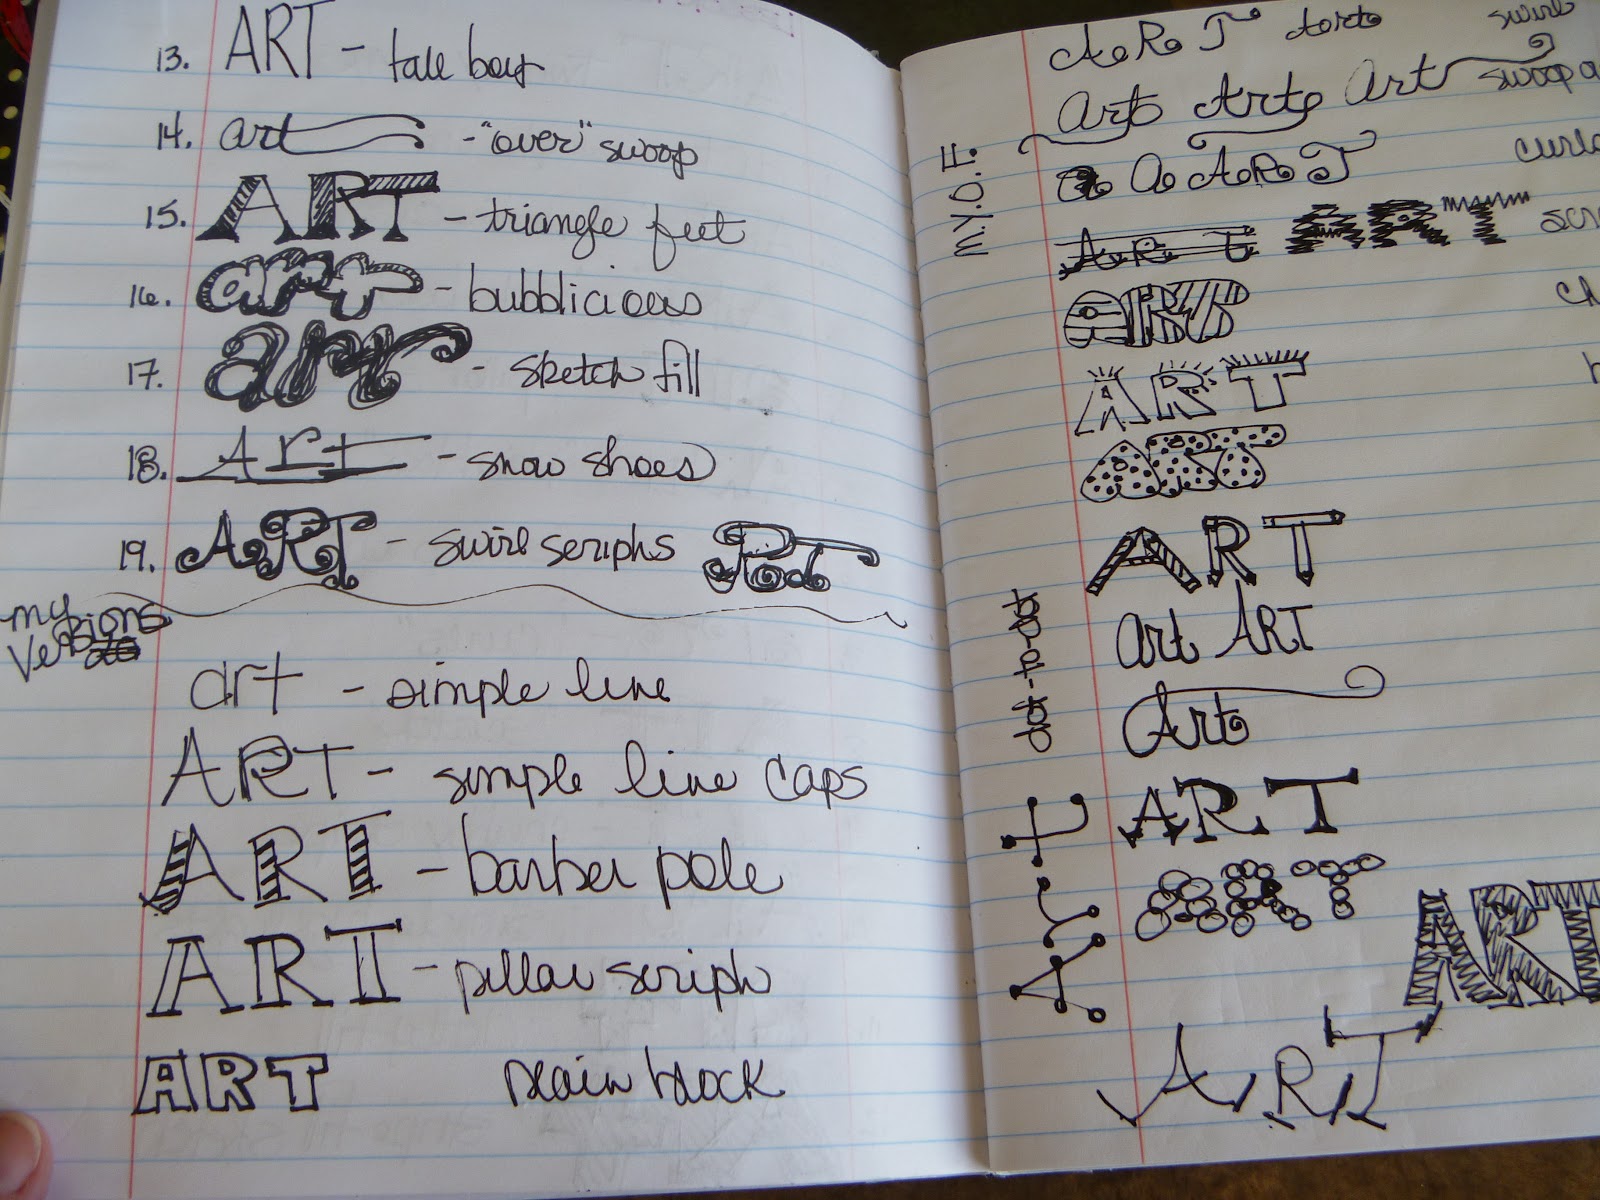 13. ART - tall boy
14. art - "over" swoop
15. ART - triangle feet
16. art - bubblicious
17. art - sketch fill
18. Art - snow shoes
19. ART - swirl seriphs
my
versions
art - simple line
ART - simple line caps
ART - barber pole
ART - pillar seriph
ART plain block
M.Y.O.F.
dot-to-dot
Art
ART art swirl
art Art Art swoop a
a a ART curl
ART ART scr
ART ch
ART h
ART
ART
art ART
Art
ART
ART
ART
ART